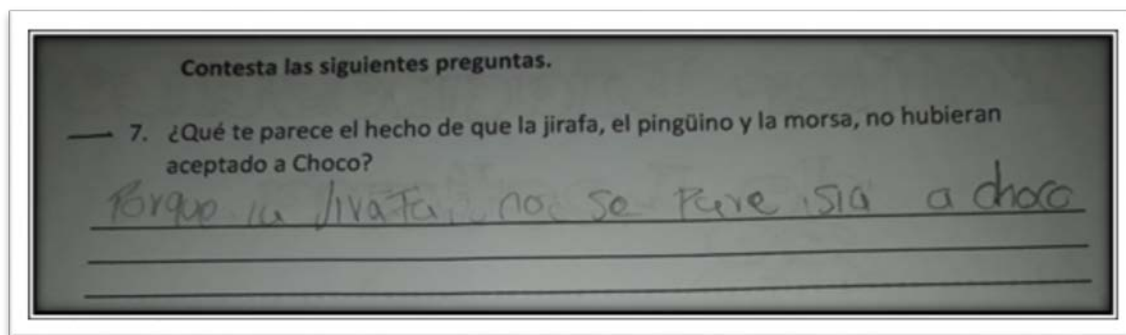 Contesta las siguientes preguntas.
7. ¿Qué te parece el hecho de que la jirafa, el pingüino y la morsa, no hubieran
aceptado a Choco?
Porque la Jirafa, no se Pare sia a choco